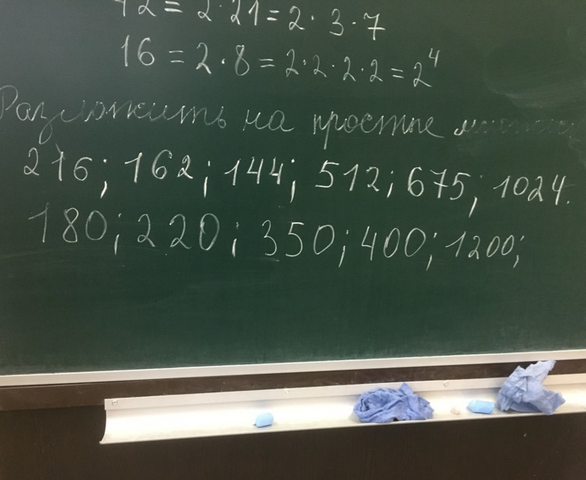 42 = 2·21 = 2·3·7
16 = 2·8 = 2·2·2·2 = 2⁴
Разложить на простые
216; 162; 144; 512; 675; 1024.
180; 220; 350; 400; 1200;